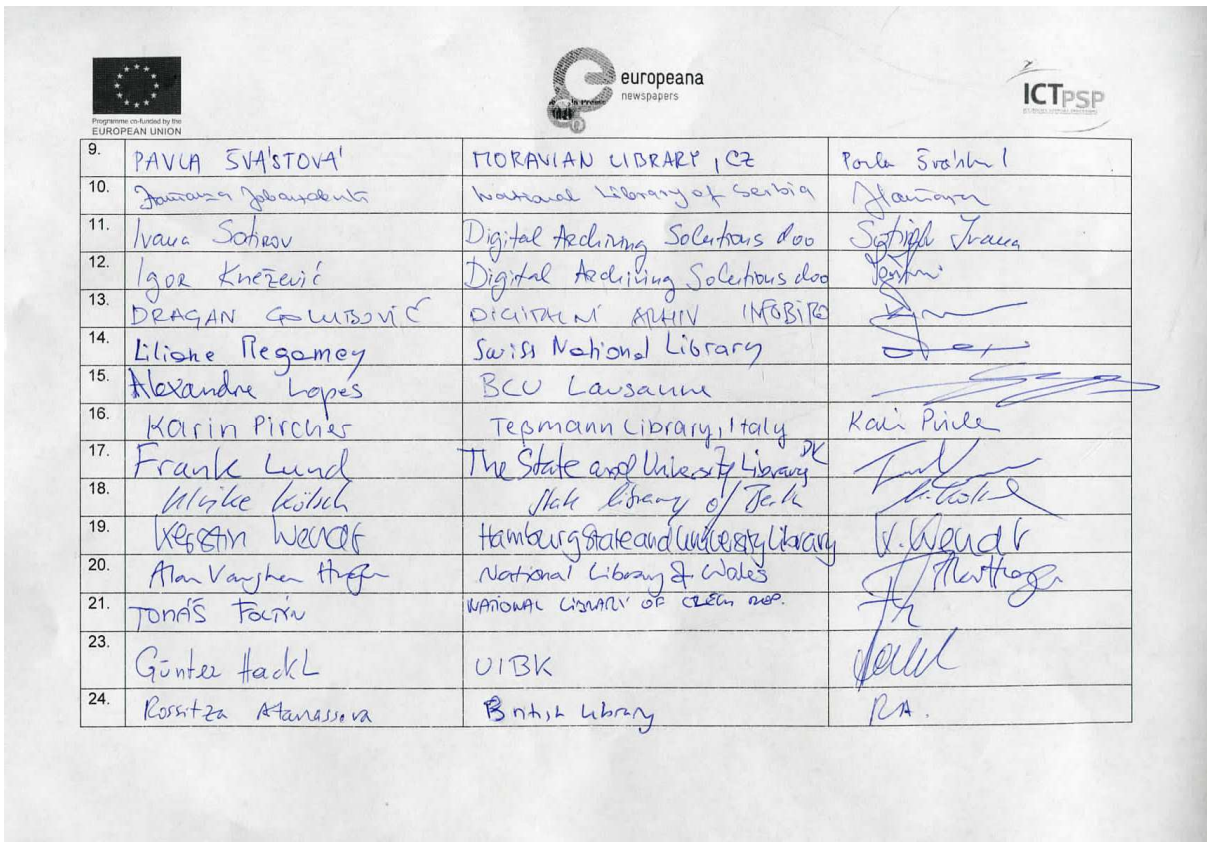 europeana
newspapers
ICTPSP
Programme co-funded by the
EUROPEAN UNION
9. PAVLA ŠVÁSTOVÁ MORAVIAN LIBRARY, CZ
10. National Library of Serbia
11. Ivana Sotirov Digital Archiving Solutions doo Ivana
12. Igor Knežević Digital Archiving Solutions doo
13. DRAGAN GOLUBOVIĆ DIGITALNI ARHIV INFOBIRO
14. Liliane Regamey Swiss National Library
15. Alexandre Lopes BCU Lausanne
16. Karin Pircher Teßmann Library, Italy
17. Frank Lund The State and University Library DK
18. Ulrike Kölsch State library of
19. Kerstin Wendt Hamburg State and University Library K. Wendt
20. Alan Vaughan Hughes National Library of Wales
21. TOMÁŠ FOLTÝN NATIONAL LIBRARY OF CZECH REP.
23. Günter Hackl UIBK Hackl
24. Rossitza Atanassova British Library RA.